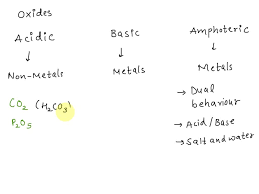 Oxides
Acidic Basic Amphoteric
↓ ↓ ↓
Non-Metals Metals Metals
CO₂ (H₂CO₃)
P₂O₅
→ Dual behaviour
→ Acid/Base
→ Salt and water